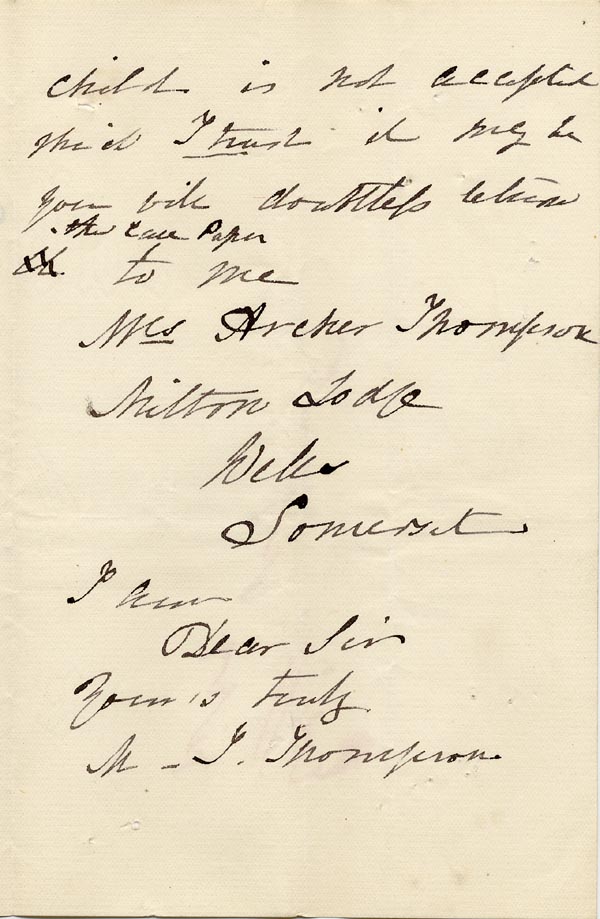 child is not accepted
which I trust it may be
you will doubtless return
the Case Paper
to me
Mrs Archer Thompson
Milton Lodge
Wells
Somerset
I am
Dear Sir
Your's truly
M. I. Thompson